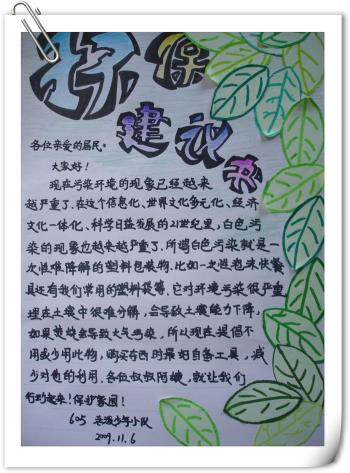 环保
建议书
各位亲爱的居民。
大家好!
现在污染环境的现象已经越来
越严重了.在这个信息化、世界文化多元化、经济
文化一体化、科学日益发展的21世纪里,白色污
染的现象也越来越严重了.所谓白色污染就是一
次性难降解的塑料包装物.比如一次性泡沫快餐
具还有我们常用的塑料袋等.它对环境污染很严重
埋在土壤中很难分解,会导致土壤能力下降,
如果焚烧会导致大气污染,所以现在提倡不
用或少用此物,购买东西时最好自备工具,减
少对包的利用.各位叔叔阿姨,就让我们
行动起来!保护家园!
605 少年小队
2009.11.6